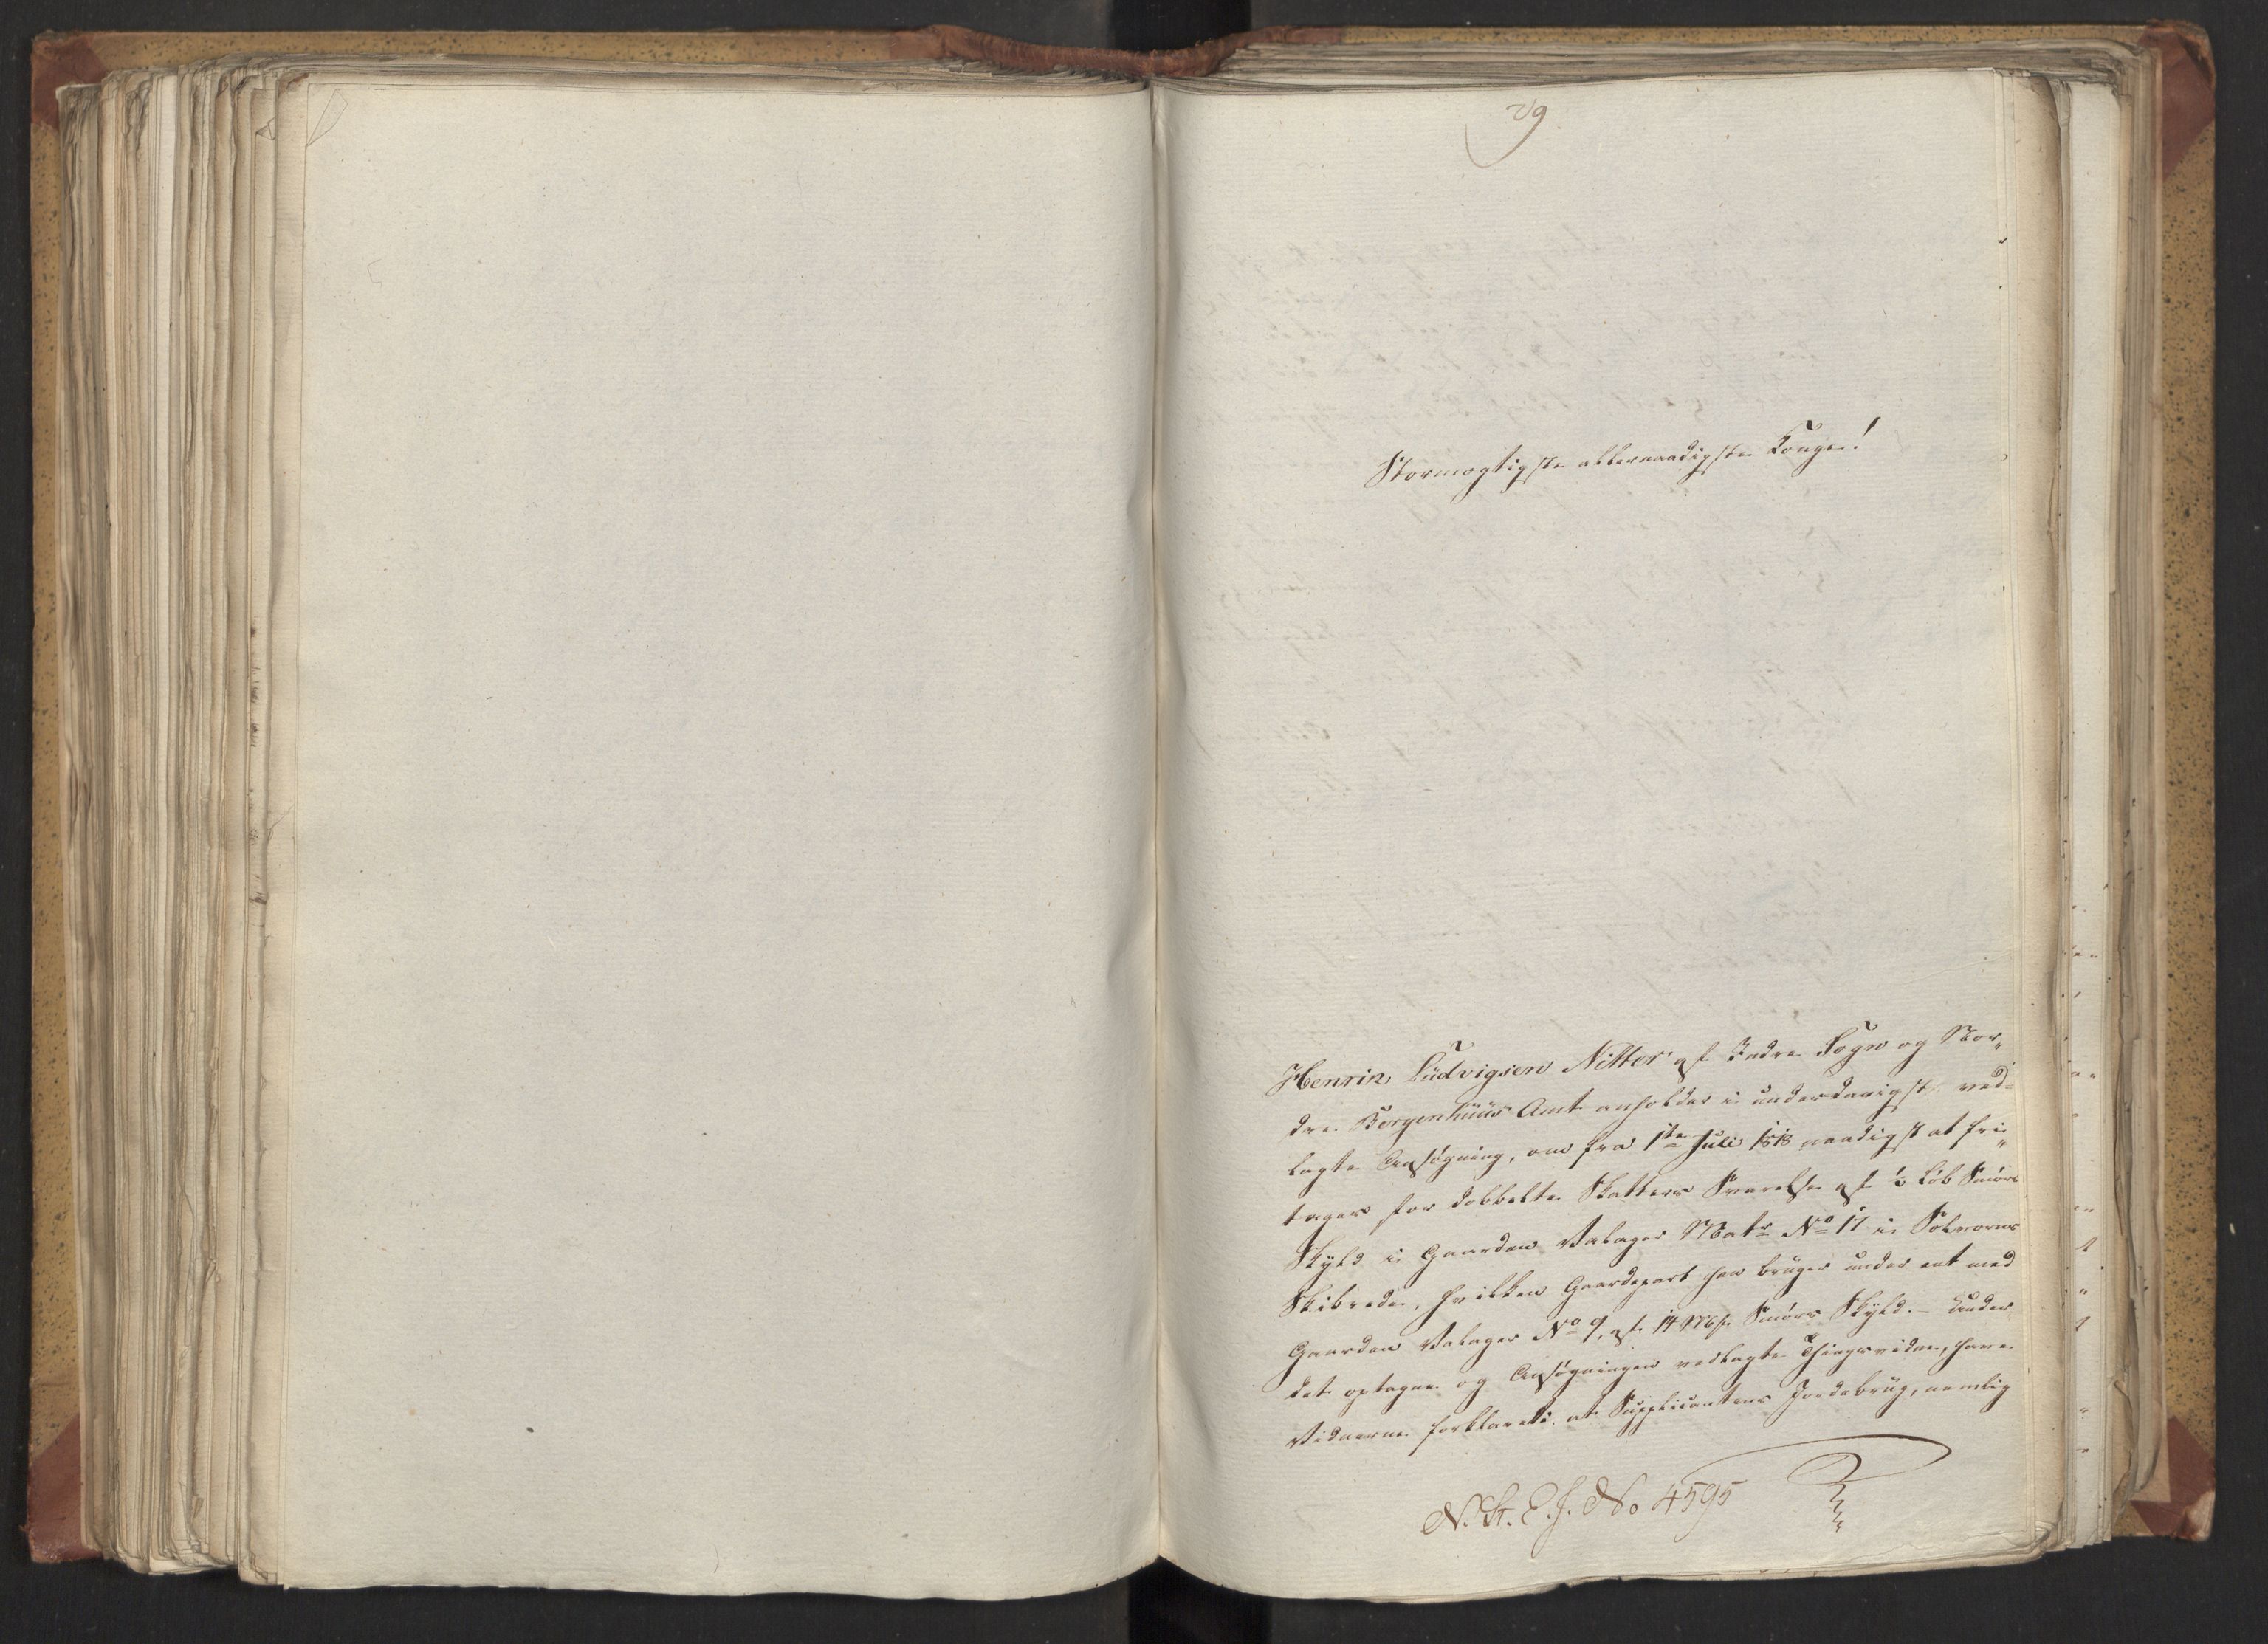 29
Stormægtigste allernaadigste Konge!
Henrik Ludvigsen Nitter af Indre Sogn og Nor„
dre Bergenhuus Amt anholder i underdanigst ved=
lagte Ansøgning, om fra 1ste Juli 1818 naadigst at fri„
tages for dobbelte Skatters Svarelse af ½ Løb Smørs
Skyld i Gaarden Valager Matr No 17 i Solvorns
Skibrede, hvilken Gaardepart han bruger under eet med
Gaarden Valager No 9, af 14 Mrk. Smørs Skyld. – Under
det optagne og Ansøgningen vedlagte Thingsvidne, have
Vidnerne forklaret: at Supplicantens Jordebrug, nemlig
N. St. E. J. No 4595